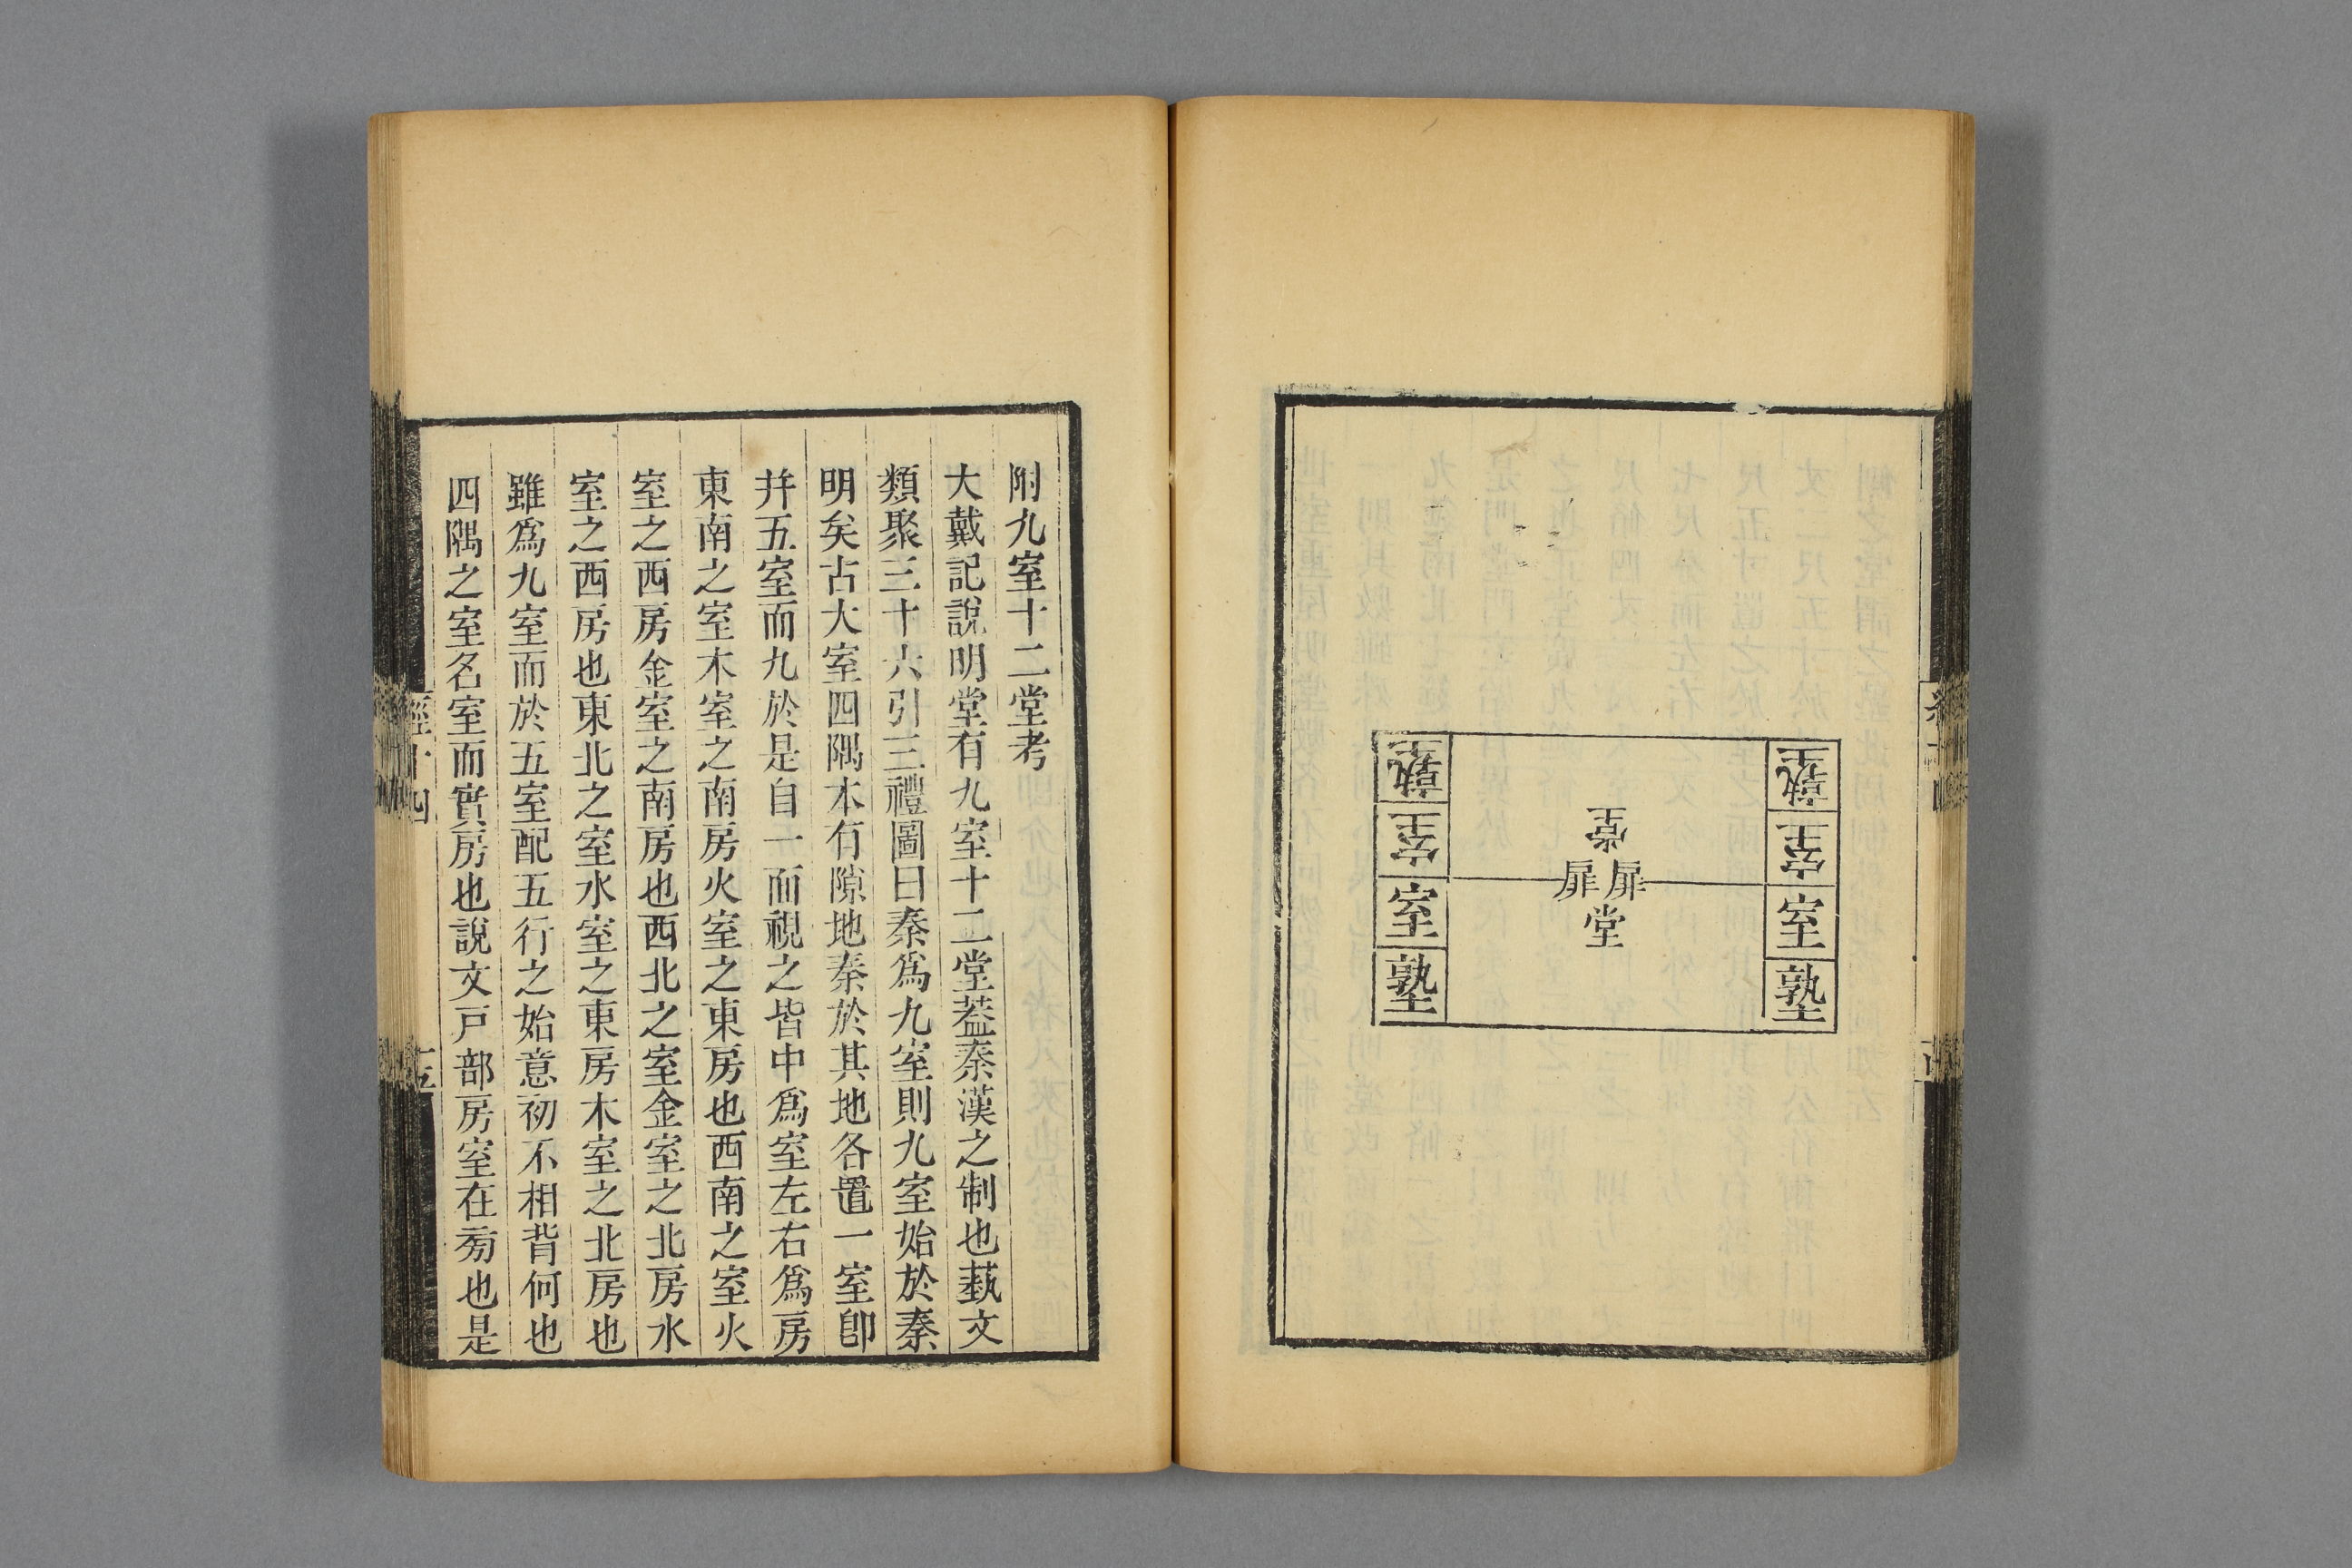 塾 塾
室 堂 室
扉 扉
室 堂 室
塾 塾
附九室十二堂考
大戴記說明堂有九室十二堂葢秦漢之制也藝文
類聚三十六引三禮圖曰秦爲九室則九室始於秦
明矣古大室四隅本有隙地秦於其地各置一室卽
幷五室而九於是自一而視之皆中爲室左右爲房
東南之室木室之南房火室之東房也西南之室火
室之西房金室之南房也西北之室金室之北房水
室之西房也東北之室水室之東房木室之北房也
雖爲九室而於五室配五行之始意初不相背何也
四隅之室名室而實房也說文戸部房室在㫄也是